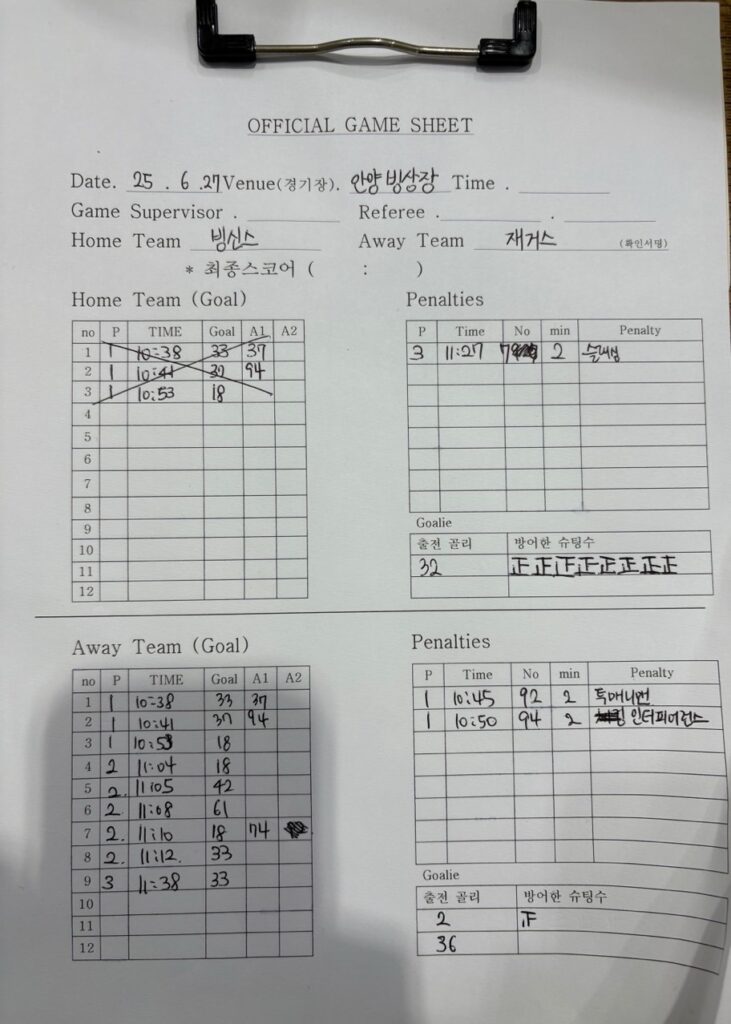 OFFICIAL GAME SHEET
Date. 25 . 6 .27 Venue(경기장). 안양빙상장 Time .
Game Supervisor . Referee . .
Home Team 빙신스 Away Team 재거스 (확인서명)
* 최종스코어 ( : )
Home Team (Goal)
no P TIME Goal A1 A2
1 1 10:38 33 37
2 1 10:41 37 94
3 1 10:53 18
4
5
6
7
8
9
10
11
12
Penalties
P Time No min Penalty
3 11:27 79 2 슬래싱
Goalie
출전 골리 방어한 슈팅수
32 正正正正正正正正
Away Team (Goal)
no P TIME Goal A1 A2
1 1 10:38 33 37
2 1 10:41 37 94
3 1 10:53 18
4 2 11:04 18
5 2. 11:05 42
6 2. 11:08 61
7 2. 11:10 18 74
8 2. 11:12. 33
9 3 11:38 33
10
11
12
Penalties
P Time No min Penalty
1 10:45 92 2 투매니맨
1 10:50 94 2 인터피어런스
Goalie
출전 골리 방어한 슈팅수
2 正
36